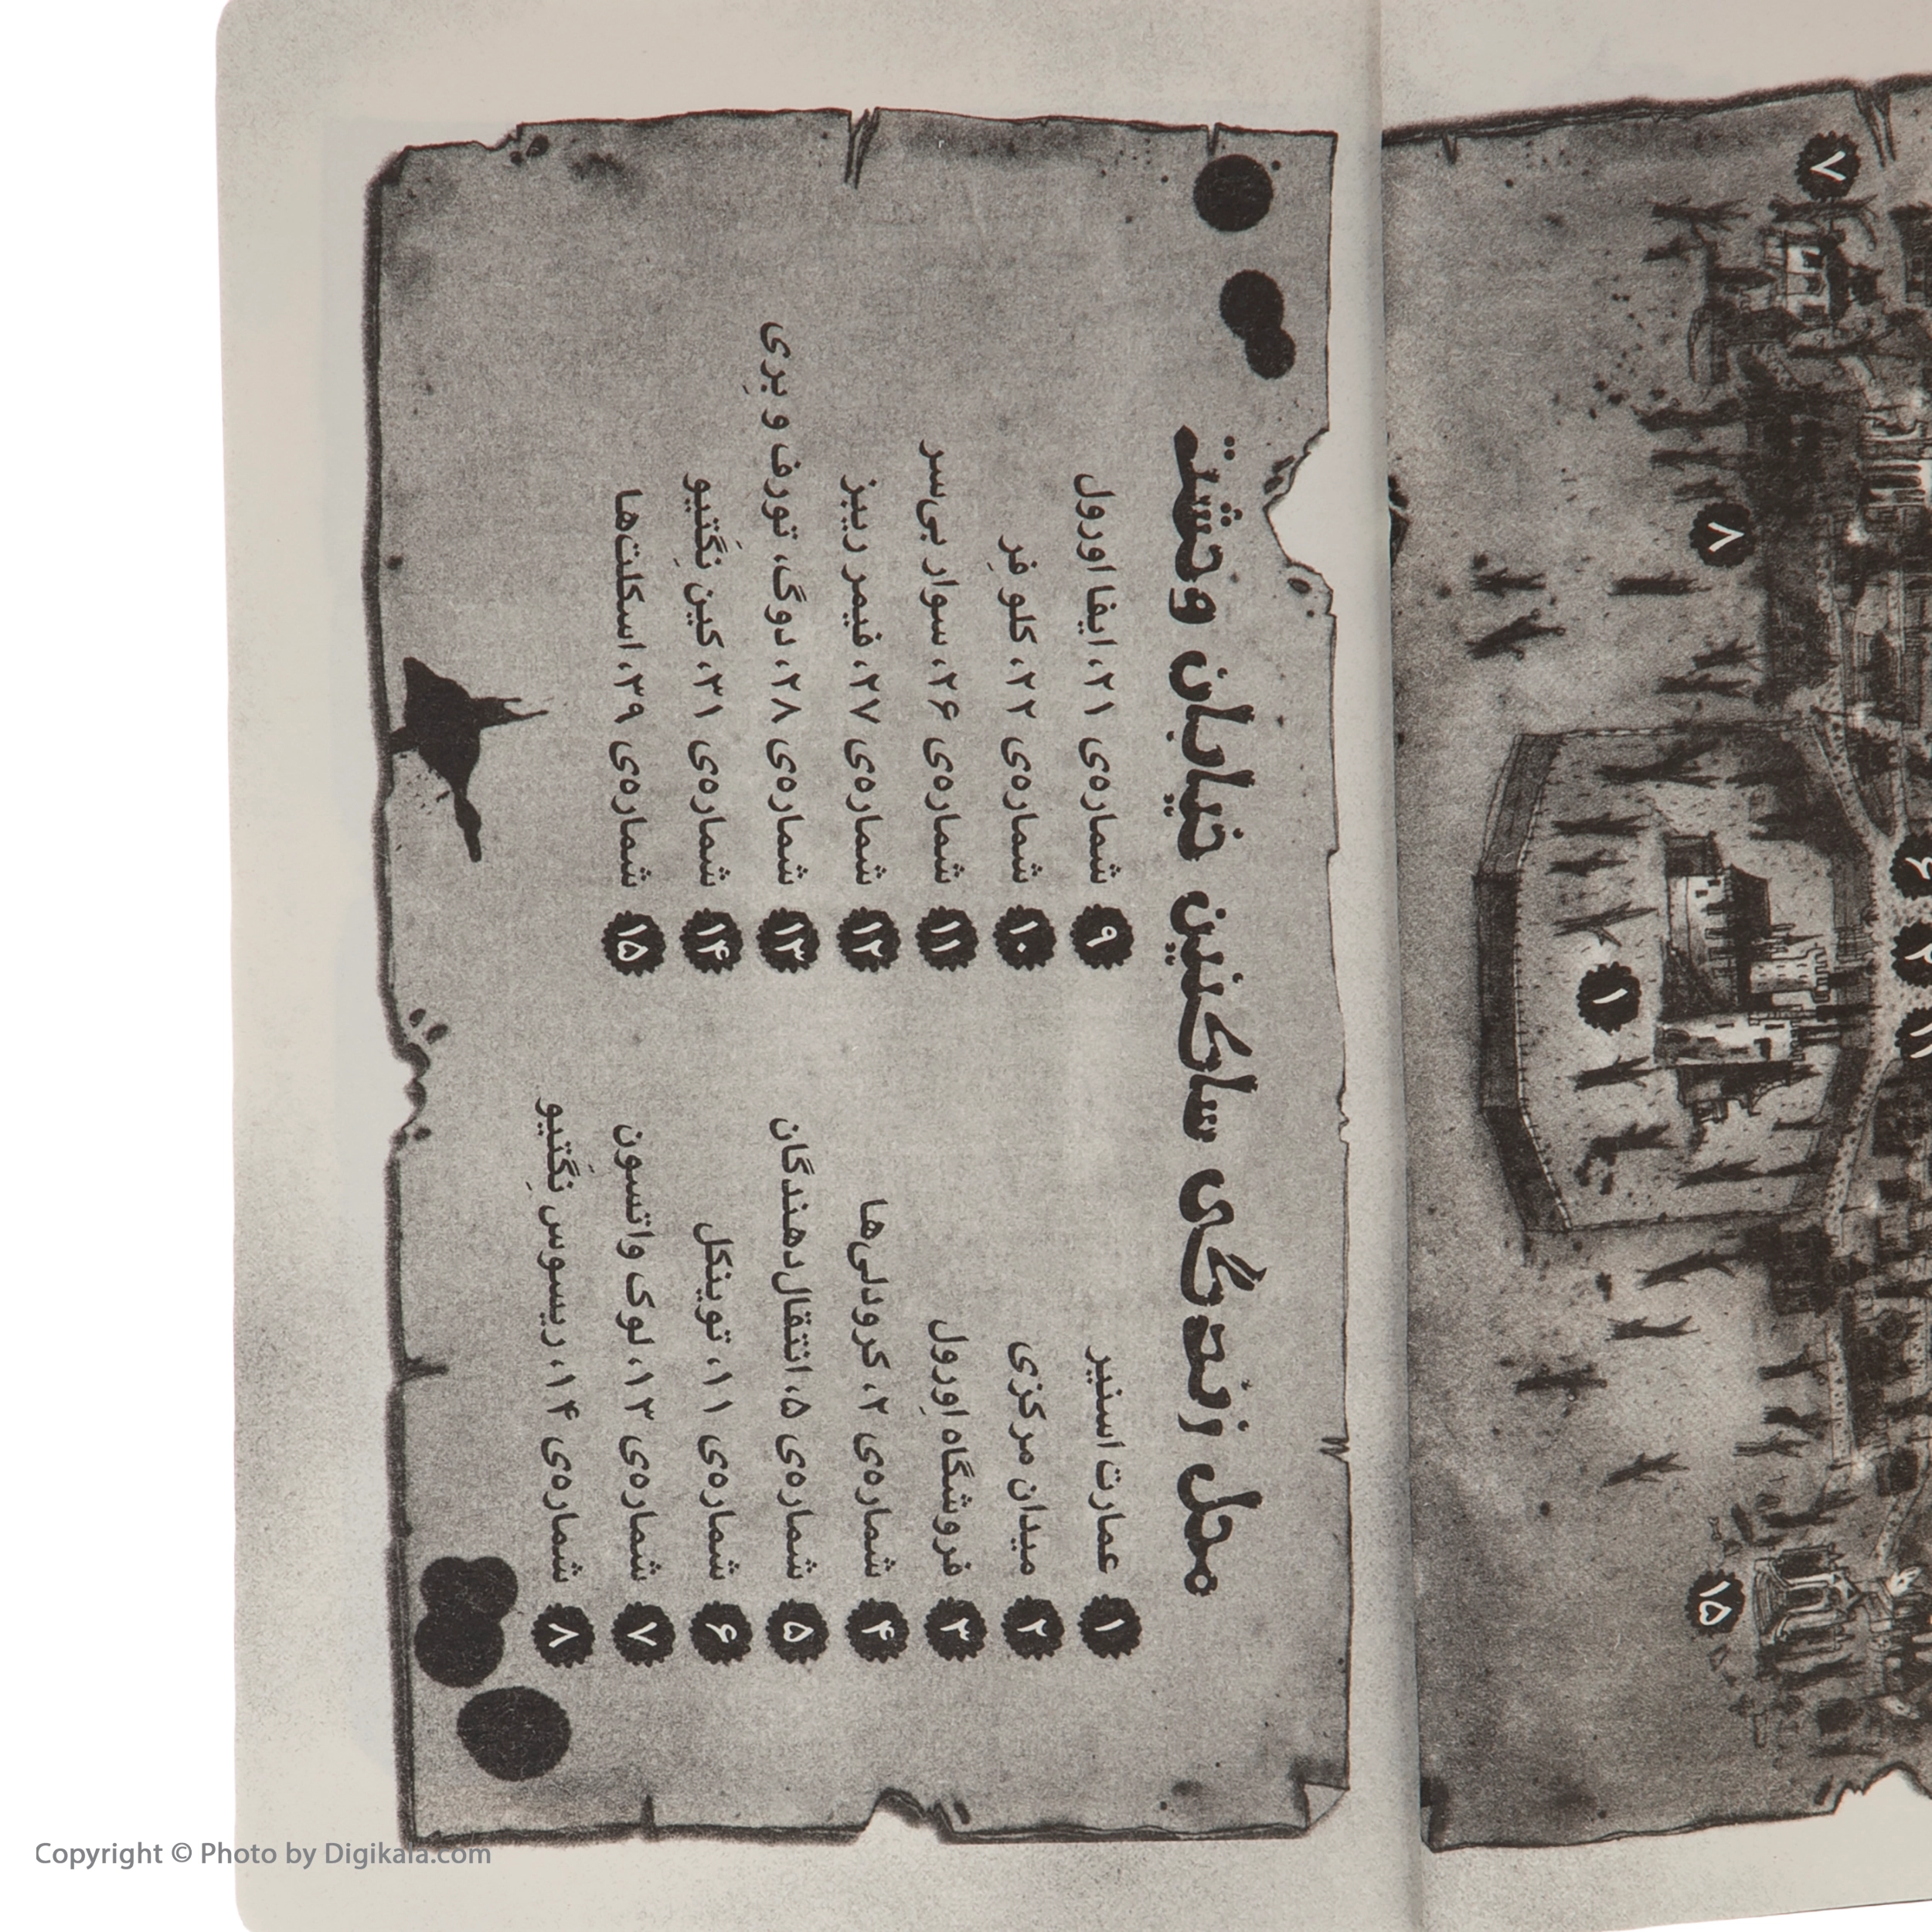 محل زندگی ساکنین خیابان وحشت
۱ عمارت اسنیر
۲ میدان مرکزی
۳ فروشگاه اِورول
۴ شماره‌ی ۲، کرودلی‌ها
۵ شماره‌ی ۵، انتقال‌دهندگان
۶ شماره‌ی ۱۱، توینکل
۷ شماره‌ی ۱۳، لوک واتسون
۸ شماره‌ی ۱۴، ریسوس نِگَتیو
۹ شماره‌ی ۲۱، ایفا اورول
۱۰ شماره‌ی ۲۲، کلو فِر
۱۱ شماره‌ی ۲۶، سوار بی‌سر
۱۲ شماره‌ی ۲۷، فیمر ریبز
۱۳ شماره‌ی ۲۸، دوگ، تورف و بِری
۱۴ شماره‌ی ۳۱، کین نِگَتیو
۱۵ شماره‌ی ۳۹، اسکلت‌ها
۷
۸
۶
۲
۱
۱۵
Copyright © Photo by Digikala.com